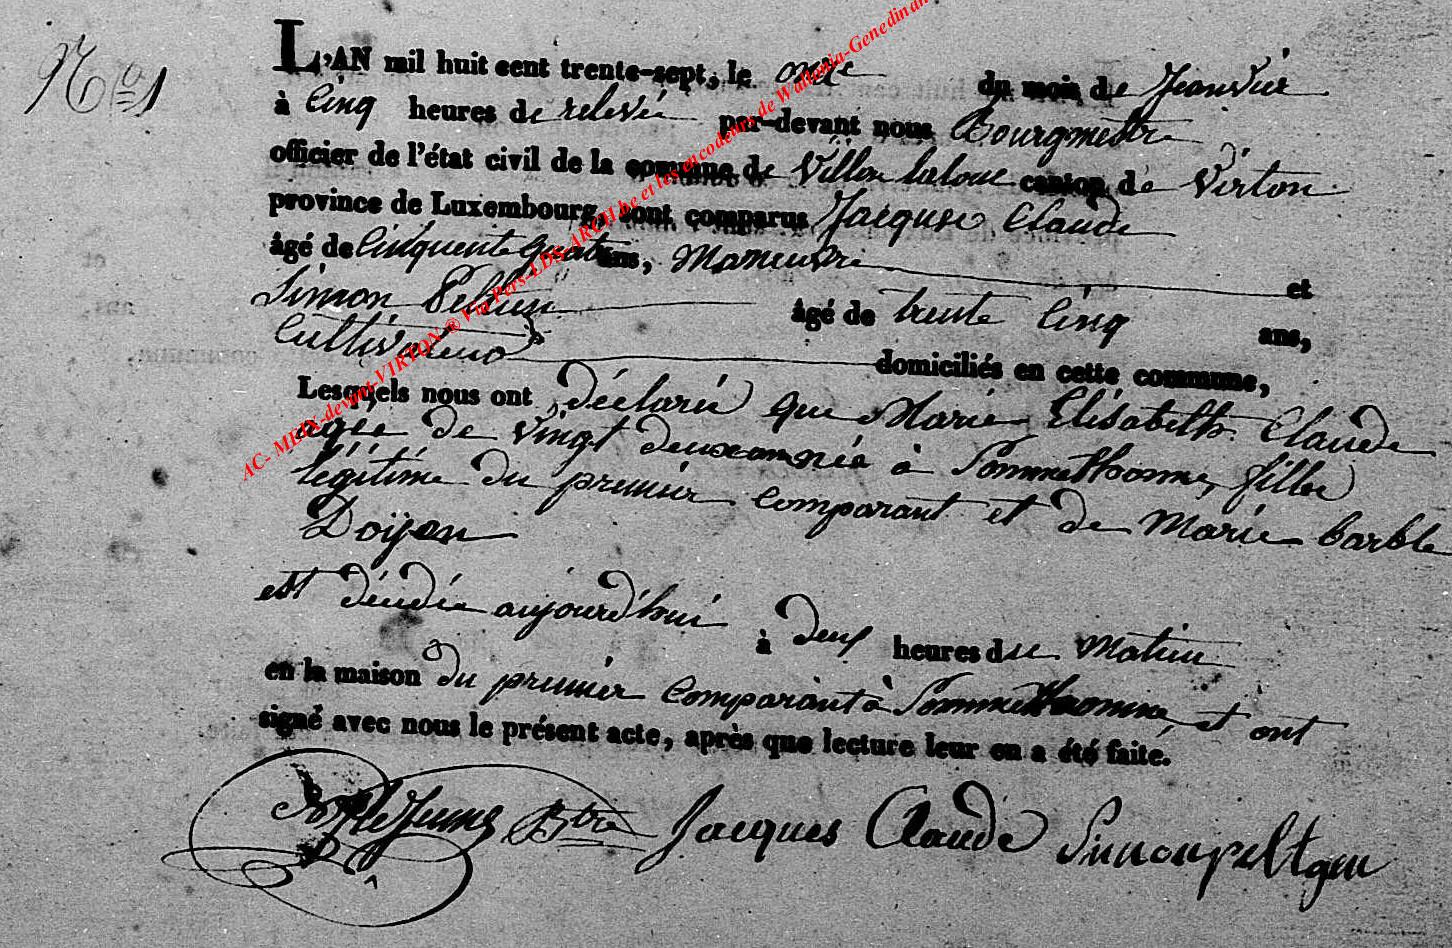 N.o 1
L'AN mil huit cent trente-sept, le onze du mois de Jeanvier
à Cinq heures de relevée par-devant nous Bourgmestre
officier de l'état civil de la commune de Villers laloue canton de Virton
province de Luxembourg, sont comparus Jacques Claude
âgé de Cinquente quatre ans, Maneuvre et
Simon Peltgen âgé de trente Cinq ans,
Cultivateur domiciliés en cette commune,
Lesquels nous ont déclaré que Marie Elisabeth Claude
agée de vingt deux ans née à Sommethonne, fille
légitime du premier Comparant et de Marie barbe
Doijen
est décédée aujourd'hui à Deux heures du Matin
en la maison du premier Comparant à Sommethonne, et ont
signé avec nous le présent acte, après que lecture leur en a été faite.
leJeune Btre Jacques Claude Simon peltgen
AC- MEIX-devant-VIRTON ® Via Pers-LDS-ARCH.be et les encodeurs de Wallonia-Genedinant